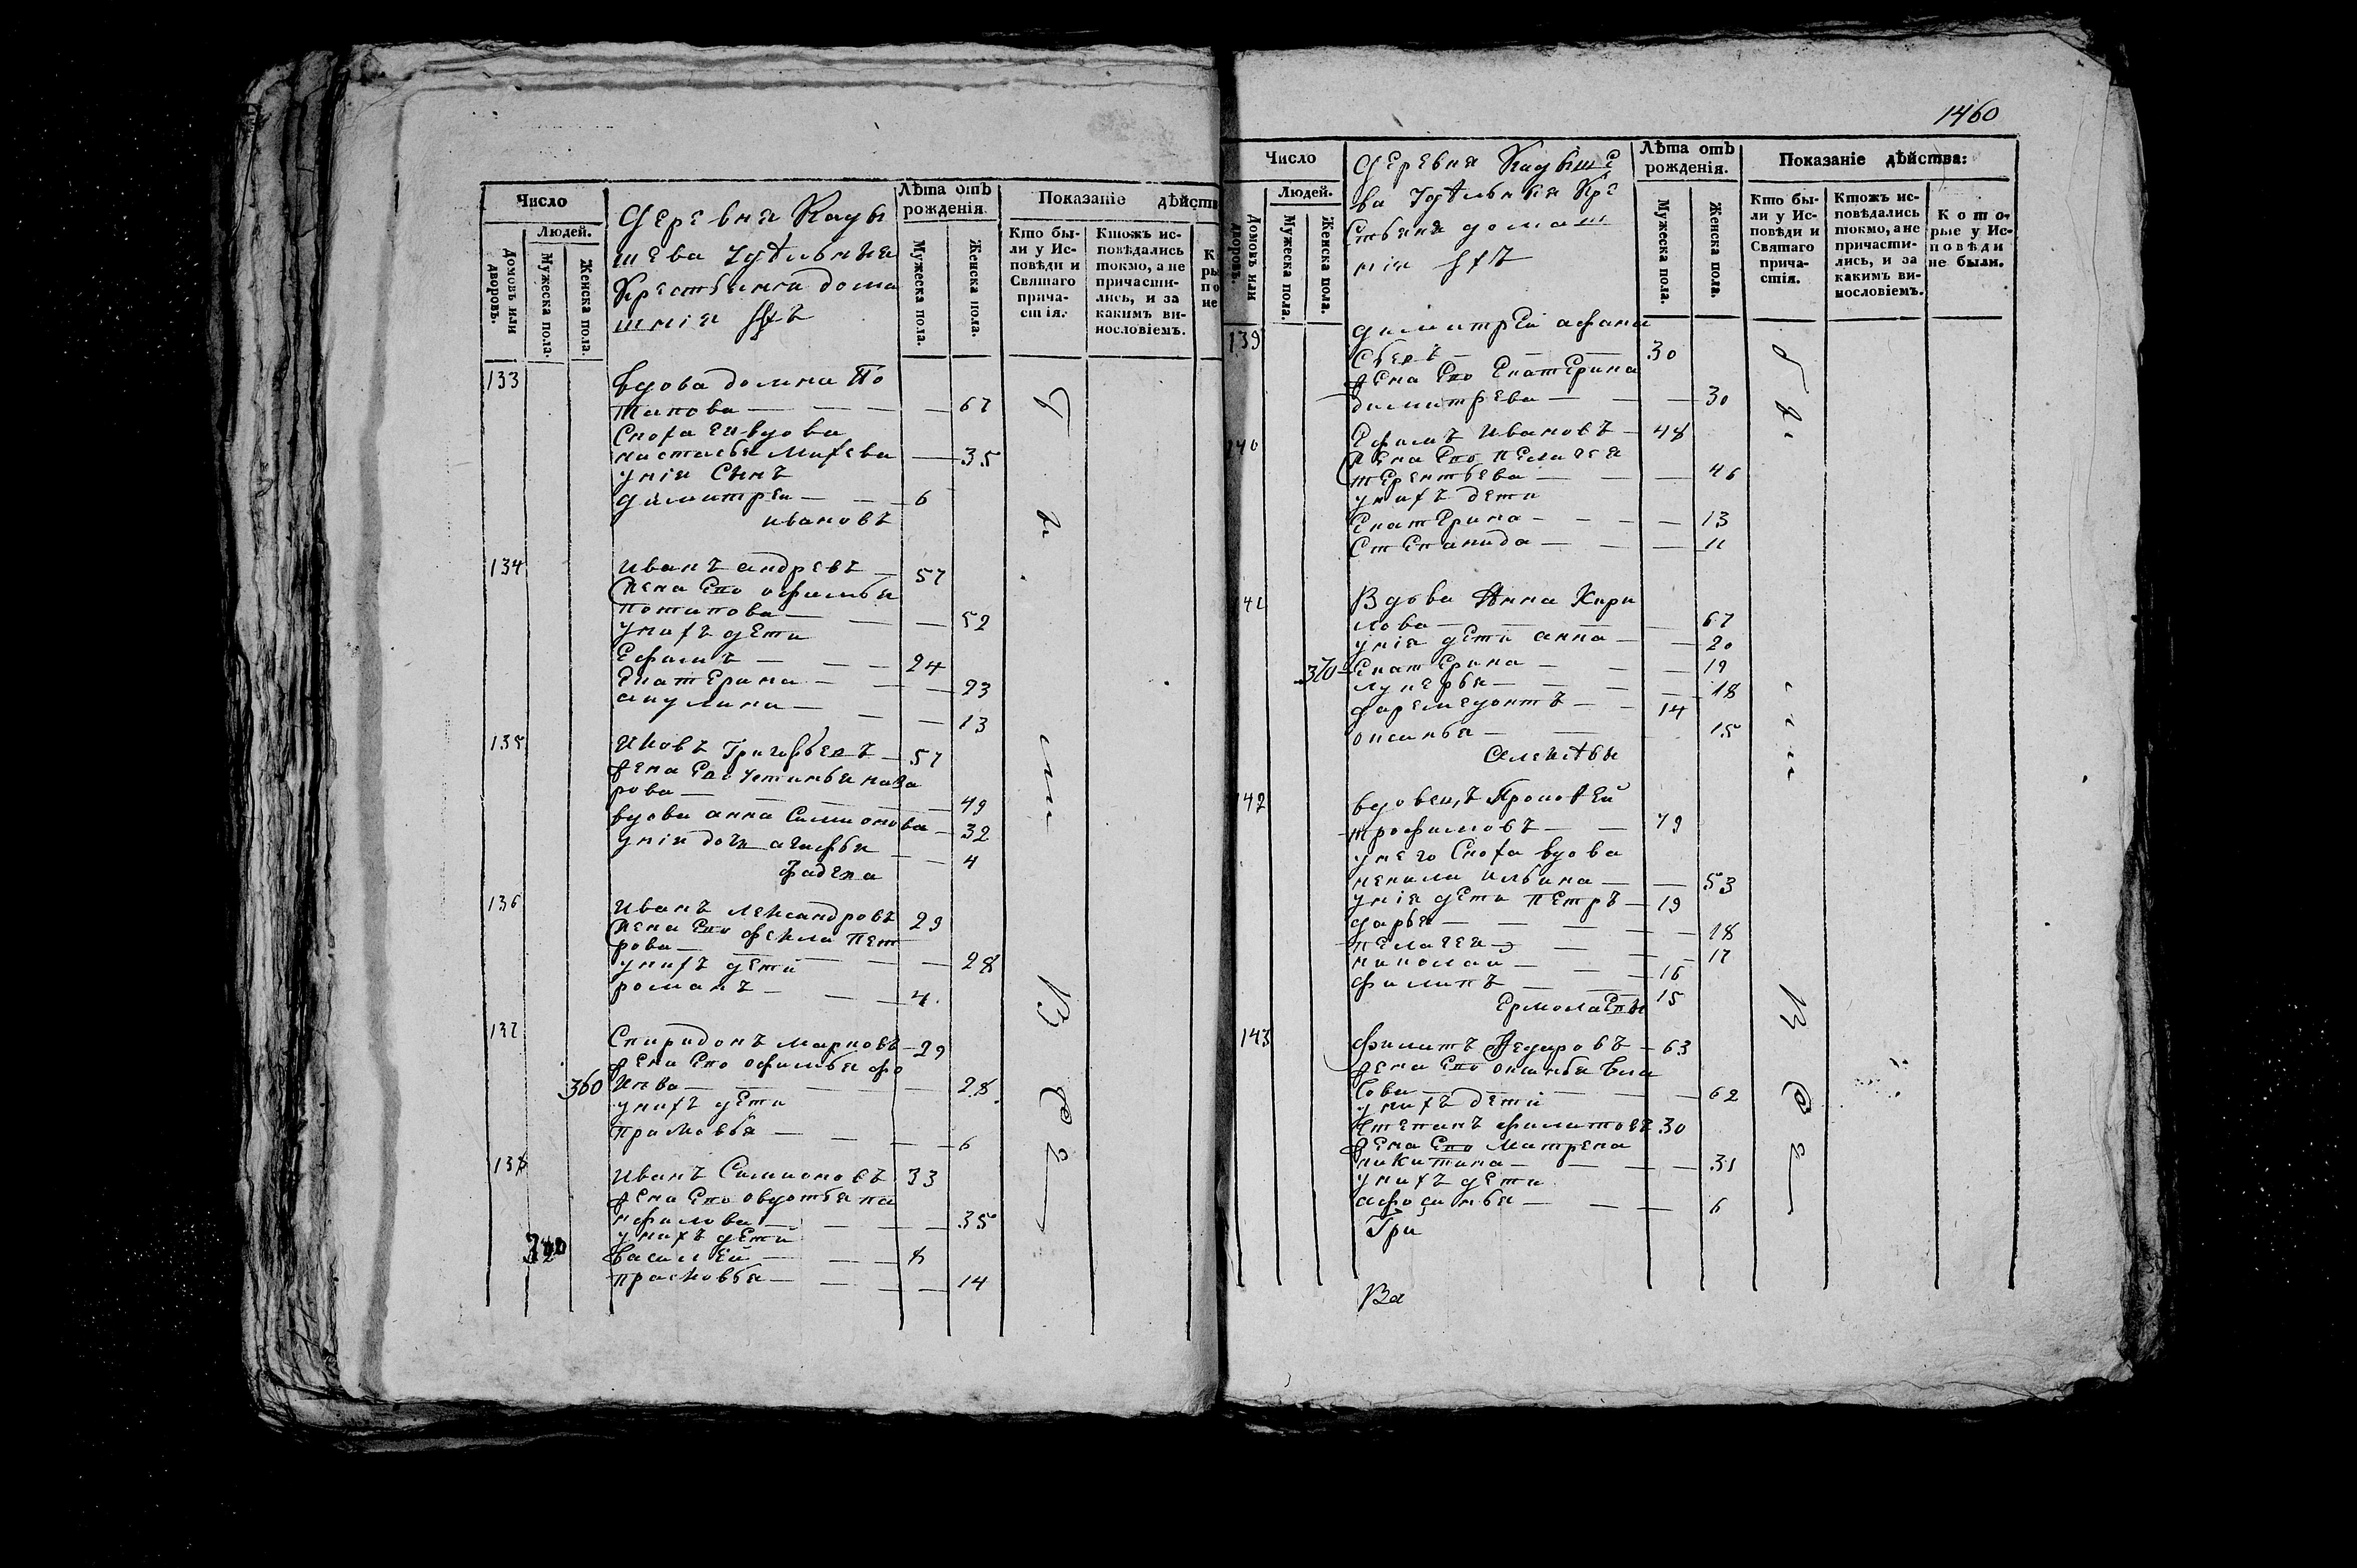 Число
Людей.
Домовъ или дворовъ.
Мужеска пола.
Женска пола.
Деревня Кады
шева Удѣльныя
Крестьянѣ дома
шнія
Лѣта отъ рожденія.
Мужеска пола.
Женска пола.
Показаніе дѣйств
Кто бы-
ли у Ис-
повѣди и
Святаго
прича-
стія.
Ктожъ ис-
повѣдались
токмо, а не
причасти-
лись, и за
какимъ ви-
нословіемъ.
133
вдова домна По
тапова — 67
Сноха ея вдова
настасья Михева — 35
унія Сынъ
димитреи — 6
ивановъ
134
иванъ андревъ — 57
жена Его офимья
потапова — 52
унихъ дети
Ефимъ — 24
Екатерина — 23
акулина — 13
135
Яковъ Григорьевъ — 57
жена Его Устинья наза
рова — 49
вдова анна Симионова — 32
унія дочь агафья — 4
фадева
136
иванъ лександровъ 29
жена Его фекла Пет
рова — 28
унихъ дети
романъ — 4
137
Спиридонъ Марковъ — 29
жена Его офимья фо
360 кива — 28
унихъ дети
прасковья — 6
138
иванъ Симионовъ 33
жена Его овдотья па
нфилова — 35
унихъ дети
василей — 8
прасковья — 14
1460
Число
Людей.
Домовъ или дворовъ.
Мужеска пола.
Женска пола.
Деревня Кадыше
ва Удѣльныя Кре
стьяня домаш
нія
Лѣта отъ рожденія.
Мужеска пола.
Женска пола.
Показаніе дѣйства:
Кто бы-
ли у Ис-
повѣди и
Святаго
прича-
стія.
Ктожъ ис-
повѣдались
токмо, а не
причасти-
лись, и за
какимъ ви-
нословіемъ.
Кото-
рые у Ис-
повѣди
не были.
139
димитрей афана
сьевъ — 30
жена Его Екатерина
димитрева — 30
140
Ефимъ Ивановъ — 48
жена Его пелагея
терентьева — 46
унихъ дети
Екатерина — 13
Степанида — 11
141
Вдова Анна Кири
лова — 67
унія дети анна — 20
370 Екатерина — 19
лукерья — 18
фаремедонтъ — 14
оксинья — 15
142
вдовецъ Прокофей
трофимовъ — 79
унего Сноха вдова
ненила ильина — 53
унія дети Петръ — 19
дарья — 18
пелагея — 17
николаи — 16
филипъ — 15
Ермолаевы
143
филипъ Федаровъ — 63
жена Его оксинья Вла
сова — 62
унихъ дети
Степанъ филиповъ 30
жена Его Матрена
никитина — 31
унихъ дети
афросинья — 6
Гри
Ва